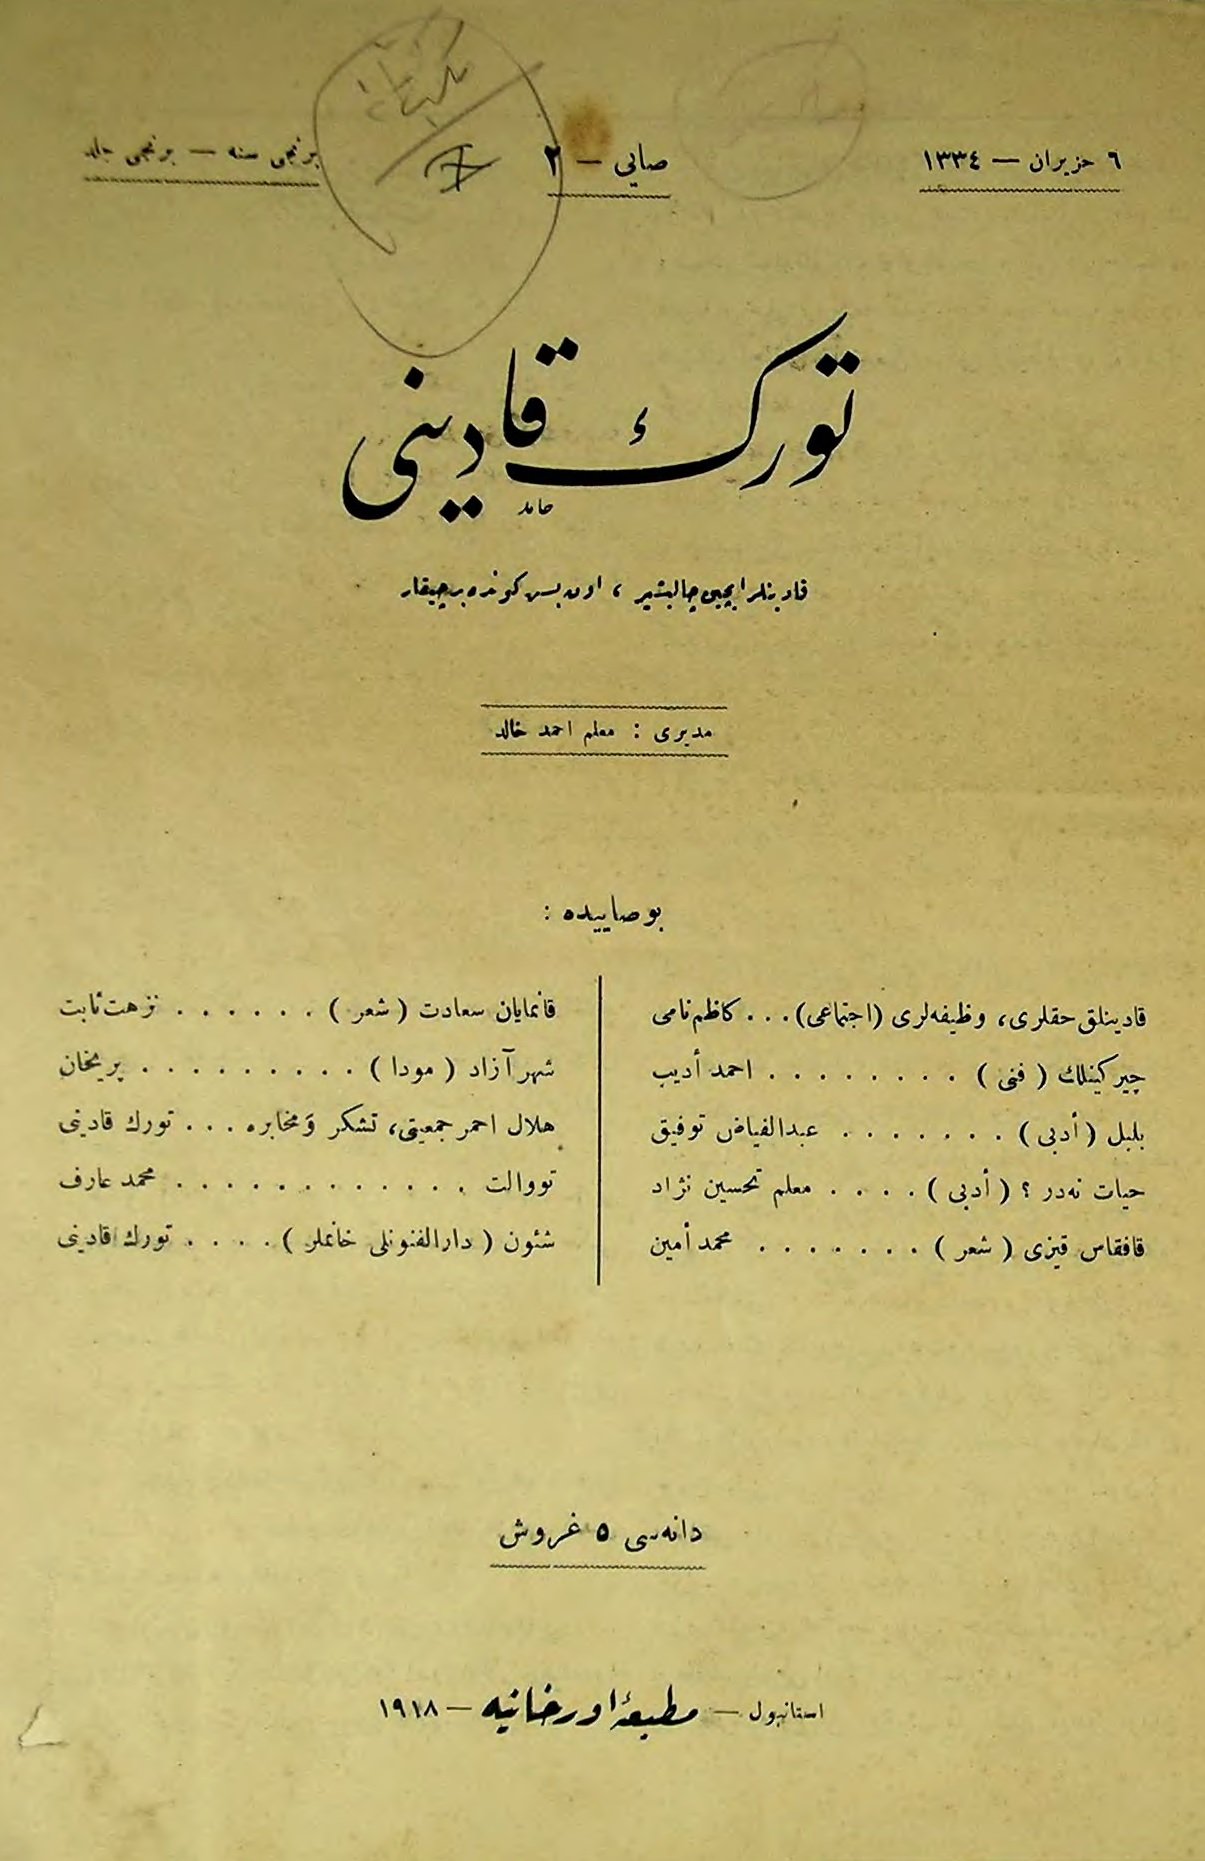 ٦ حزيران — ١٣٣٤
صايي — ٢
برنجى سنه — برنجى جلد
تورك قادينى
حامد
قادينلر ايچين چاليشير ، اون بش كونده بر چيقار
مديرى : معلم احمد خالد
بو صاييده :
قادينلق حقلرى، وظيفه‌لرى (اجتماعى) . . . كاظم نامى
چيركينلك ( فنى ) . . . . . . . . احمد أديب
بلبل ( أدبى ) . . . . . . . عبدالفياض توفيق
حيات نه‌در ؟ ( أدبى ) . . . . معلم تحسين نژاد
قافقاس قيزى ( شعر ) . . . . . . . محمد أمين
قانمايان سعادت ( شعر ) . . . . . . نزهت ثابت
شهر آزاد ( مودا ) . . . . . . . . . پريخان
هلال احمر جمعيتى، تشكر وَ مخابره . . . تورك قادينى
تووالت . . . . . . . . . . . . محمد عارف
شئون ( دارالفنونلى خانملر ) . . . . تورك قادينى
دانه‌سى ٥ غروش
استانبول — مطبعهٔ اورخانيه — ١٩١٨